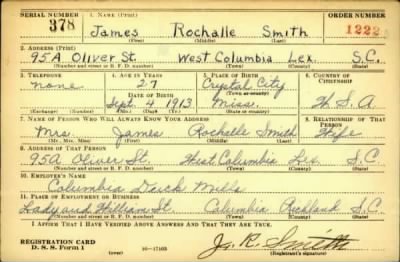 SERIAL NUMBER 1. NAME (Print) ORDER NUMBER
378 James Rochalle Smith 1222
(First) (Middle) (Last)
2. ADDRESS (Print)
95A Oliver St. West Columbia Lex. S.C.
(Number and street or R. F. D. number) (Town) (County) (State)
3. TELEPHONE 4. AGE IN YEARS 5. PLACE OF BIRTH 6. COUNTRY OF CITIZENSHIP
none 27 Crystal City
DATE OF BIRTH (Town or county)
Sept. 4 1913 Miss. U.S.A
(Exchange) (Number) (Mo.) (Day) (Yr.) (State or country)
7. NAME OF PERSON WHO WILL ALWAYS KNOW YOUR ADDRESS 8. RELATIONSHIP OF THAT PERSON
Mrs. James Rochelle Smith Wife
(Mr., Mrs., Miss) (First) (Middle) (Last)
9. ADDRESS OF THAT PERSON
95A Oliver St. West Columbia Lex. S.C.
(Number and street or R. F. D. number) (Town) (County) (State)
10. EMPLOYER'S NAME
Columbia Duck Mills
11. PLACE OF EMPLOYMENT OR BUSINESS
Lady and William St. Columbia Richland S.C.
(Number and street or R. F. D. number) (Town) (County) (State)
I AFFIRM THAT I HAVE VERIFIED ABOVE ANSWERS AND THAT THEY ARE TRUE.
REGISTRATION CARD
D. S. S. Form 1 (over) 16—17105 Js. R. Smith
(Registrant's signature)